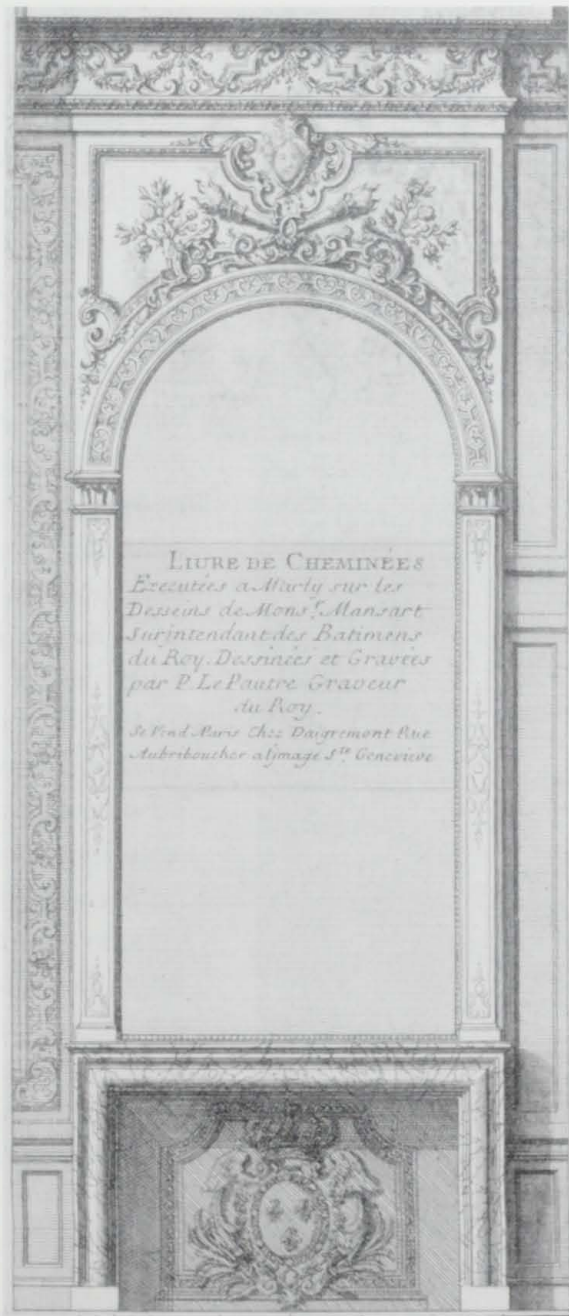 LIURE DE CHEMINÉES
Executées a Marly sur les
Desseins de Mons.r Mansart
Surintendant des Batimens
du Roy. Dessinées et Gravées
par P. Le Pautre Graveur
du Roy.
Se Vend Paris Chez Daigremont Rue
Aubriboucher a l'jmage S.te Genevieve